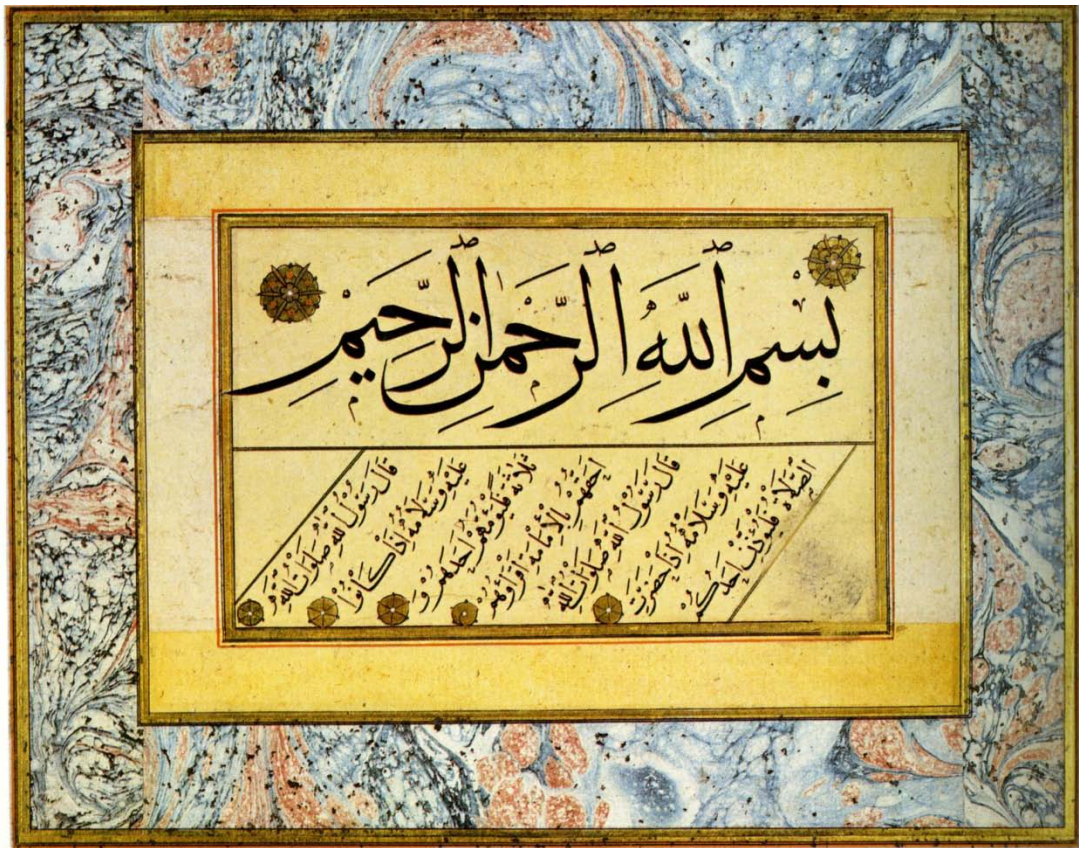 بِسْمِ ٱللَّهِ ٱلرَّحْمٰنِ ٱلرَّحِيمِ
قَالَ رَسُولُ اللهِ صَلَوَاتُ اللهِ
عَلَيْهِ وَسَلَامُهُ إِذَا كَانُوا
ثَلَاثَةً فَلْيَؤُمَّهُمْ أَحَدُهُمْ وَ
أَحَقُّهُمْ بِالْإِمَامَةِ أَقْرَؤُهُمْ
قَالَ رَسُولُ اللهِ صَلَوَاتُ اللهِ
عَلَيْهِ وَسَلَامُهُ إِذَا حَضَرَتِ
الصَّلَاةُ فَلْيُؤَذِّنْ أَحَدُكُمْ